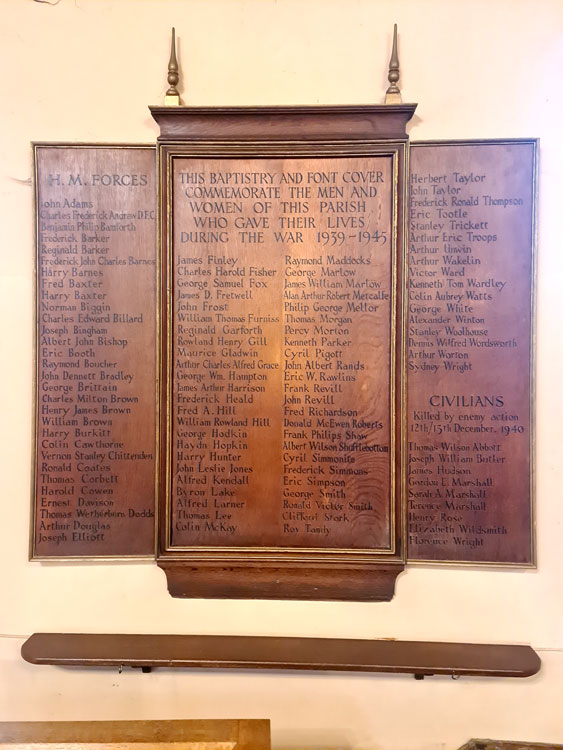 H. M. FORCES
John Adams
Charles Frederick Andrew D.F.C.
Benjamin Philip Bamforth
Frederick Barker
Reginald Barker
Frederick John Charles Barnes
Harry Barnes
Fred Baxter
Harry Baxter
Norman Biggin
Charles Edward Billard
Joseph Bingham
Albert John Bishop
Eric Booth
Raymond Boucher
John Dennett Bradley
George Brittain
Charles Milton Brown
Henry James Brown
William Brown
Harry Burkitt
Colin Cawthorne
Vernon Stanley Chittenden
Ronald Coates
Thomas Corbett
Harold Cowen
Ernest Davison
Thomas Wetherburn Dodds
Arthur Douglas
Joseph Elliott
THIS BAPTISTRY AND FONT COVER
COMMEMORATE THE MEN AND
WOMEN OF THIS PARISH
WHO GAVE THEIR LIVES
DURING THE WAR 1939-1945
James Finley
Charles Harold Fisher
George Samuel Fox
James D. Fretwell
John Frost
William Thomas Furniss
Reginald Garforth
Rowland Henry Gill
Maurice Gladwin
Arthur Charles Alfred Grace
George Wm. Hampton
James Arthur Harrison
Frederick Heald
Fred A. Hill
William Rowland Hill
George Hodkin
Haydn Hopkin
Harry Hunter
John Leslie Jones
Alfred Kendall
Byron Lake
Alfred Larner
Thomas Lee
Colin McKay
Raymond Maddocks
George Marlow
James William Marlow
Alan Arthur Robert Metcalfe
Philip George Mellor
Thomas Morgan
Percy Morton
Kenneth Parker
Cyril Pigott
John Albert Rands
Eric W. Rawlins
Frank Revill
John Revill
Fred Richardson
Donald McEwen Roberts
Frank Philips Shaw
Albert Wilson Shufflebottom
Cyril Simmonite
Frederick Simmons
Eric Simpson
George Smith
Ronald Victor Smith
Clifford Stork
Roy Tandy
Herbert Taylor
John Taylor
Frederick Ronald Thompson
Eric Tootle
Stanley Trickett
Arthur Eric Troops
Arthur Unwin
Arthur Wakelin
Victor Ward
Kenneth Tom Wardley
Colin Aubrey Watts
George White
Alexander Winton
Stanley Woolhouse
Dennis Wilfred Wordsworth
Arthur Worton
Sydney Wright
CIVILIANS
Killed by enemy action
12th/13th December, 1940
Thomas Wilson Abbott
Joseph William Butler
James Hudson
Gordon L. Marshall
Sarah A. Marshall
Terence Marshall
Henry Rose
Elizabeth Wildsmith
Florence Wright